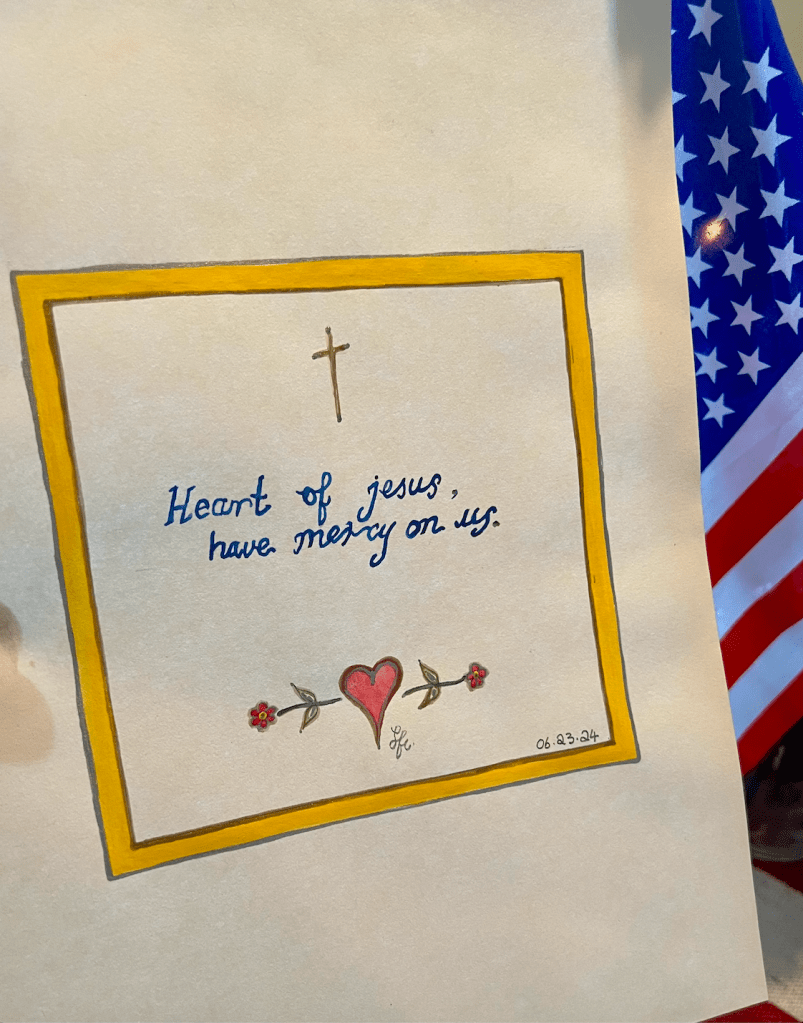 Heart of jesus,
have mercy on us.
06.23.24